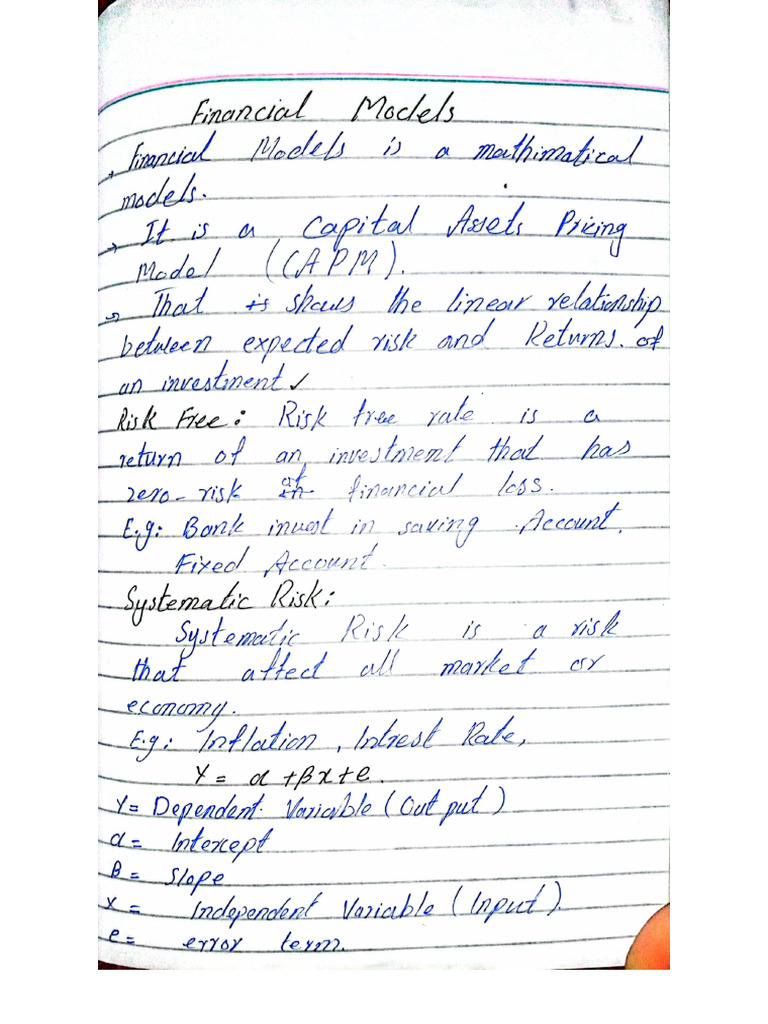 Financial Models
→ Financial Models is a mathimatical
models.
→ It is a Capital Assets Pricing
Model (CAPM).
→ That is shows the linear relationship
between expected risk and Returns. of
an investment ✓
Risk Free: Risk free rate is a
return of an investment that has
zero-risk in of financial loss.
E.g: Bank invest in saving Account,
Fixed Account.
Systematic Risk:
Systematic Risk is a risk
that affect all market or
economy.
E.g: Inflation, Intrest Rate,
Y = α + βx + e.
Y = Dependent Variable (Out put)
α = Intercept
β = Slope
x = Independent Variable (Input).
e = error term.